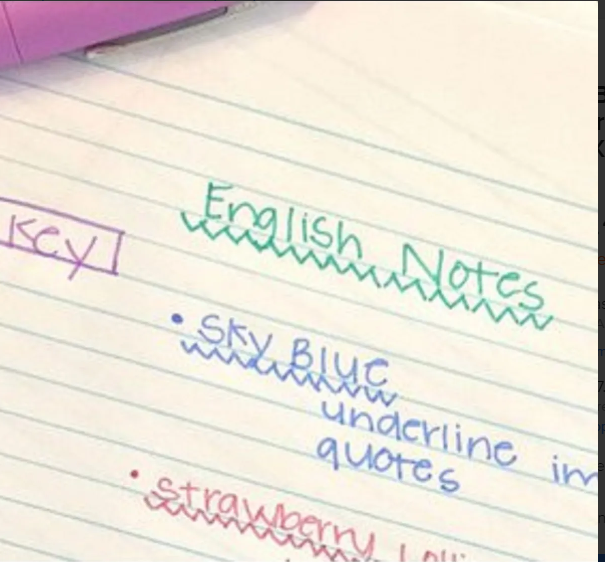 Key
English Notes
• Sky Blue
underline
quotes
• Strawberry